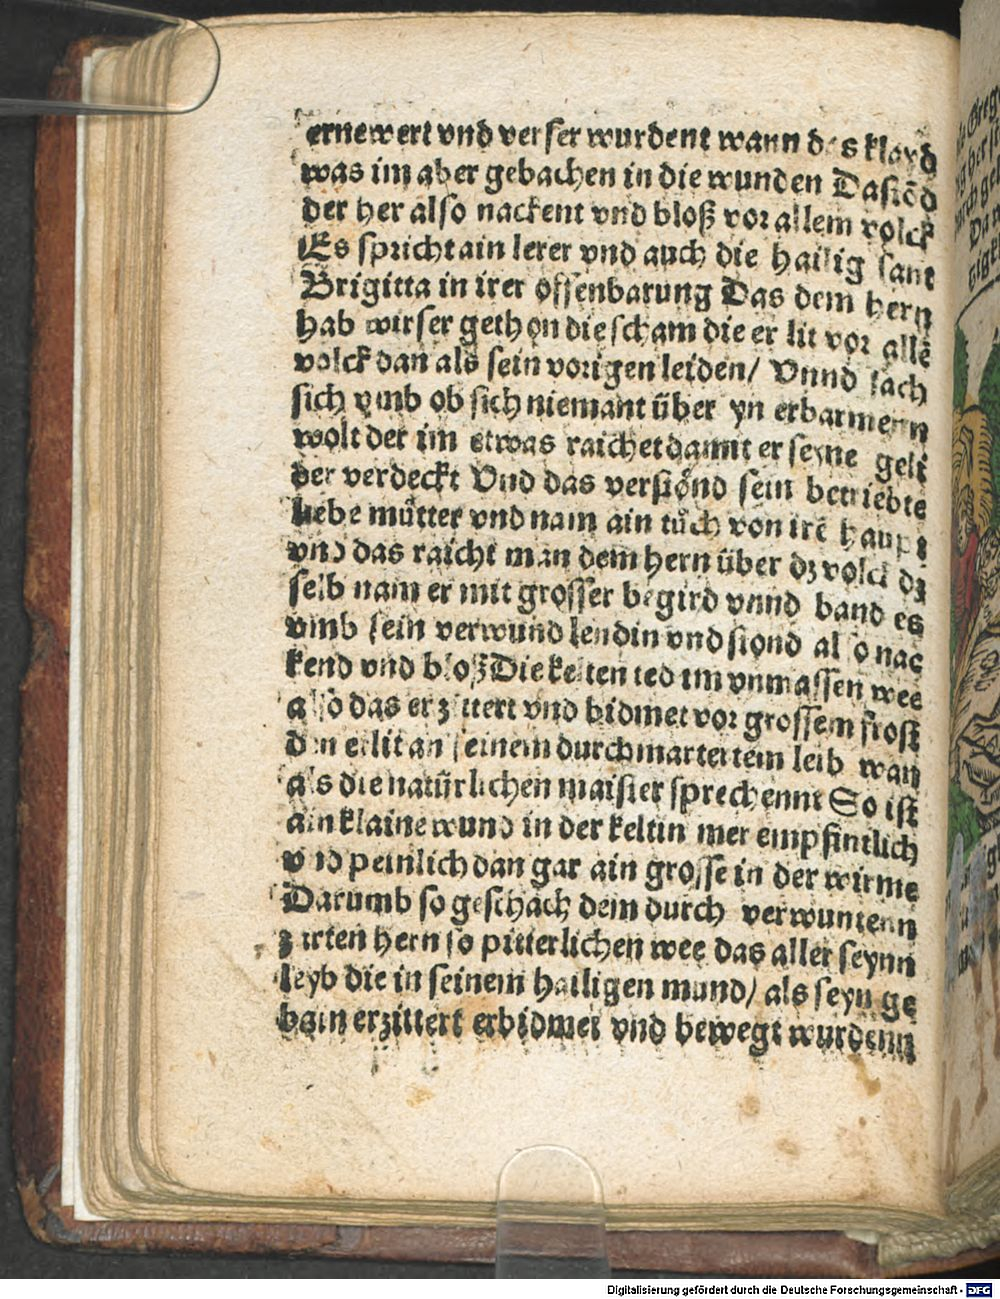 ernewert vnd verser wurdent wann das klayd
was im aber gebachen in die wunden Dastōd
der her also nackent vnd bloß vor allem volck
Es spricht ain lerer vnd auch die hailig sant
Brigitta in irer offenbarung Das dem hern
hab wirser gethon die scham die er lit vor allē
volck dan als sein vorigen leiden/ Vnnd sach
sich vmb ob sich niemant über yn erbarmenn
wolt der im etwas raichet damit er seyne geli
der verdeckt Vnd das verstönd sein betriebte
liebe mütter vnd nam ain tuch von irē haupt
vnd das raicht man dem hern über dz volck dz
selb nam er mit grosser begird vnnd band es
vmb sein verwund lendin vnd stond also nac
kend vnd bloß Die kelten ted im vnmassen wee
also das er zittert vnd bidmet vor grossem frost
den er lit an seinem durchmartertem leib wan
als die natürlichen maister sprechennt So ist
ain klaine wund in der keltin mer empfintlich
vnd peinlich dan gar ain grosse in der wirme
Darumb so geschach dem durch verwuntenn
zarten hern so pitterlichen wee das aller seynn
leyb die in seinem hailigen mund/ als seyn ge
bain erzittert erbidmet vnd bewegt wurdenn
Digitalisierung gefördert durch die Deutsche Forschungsgemeinschaft - DFG